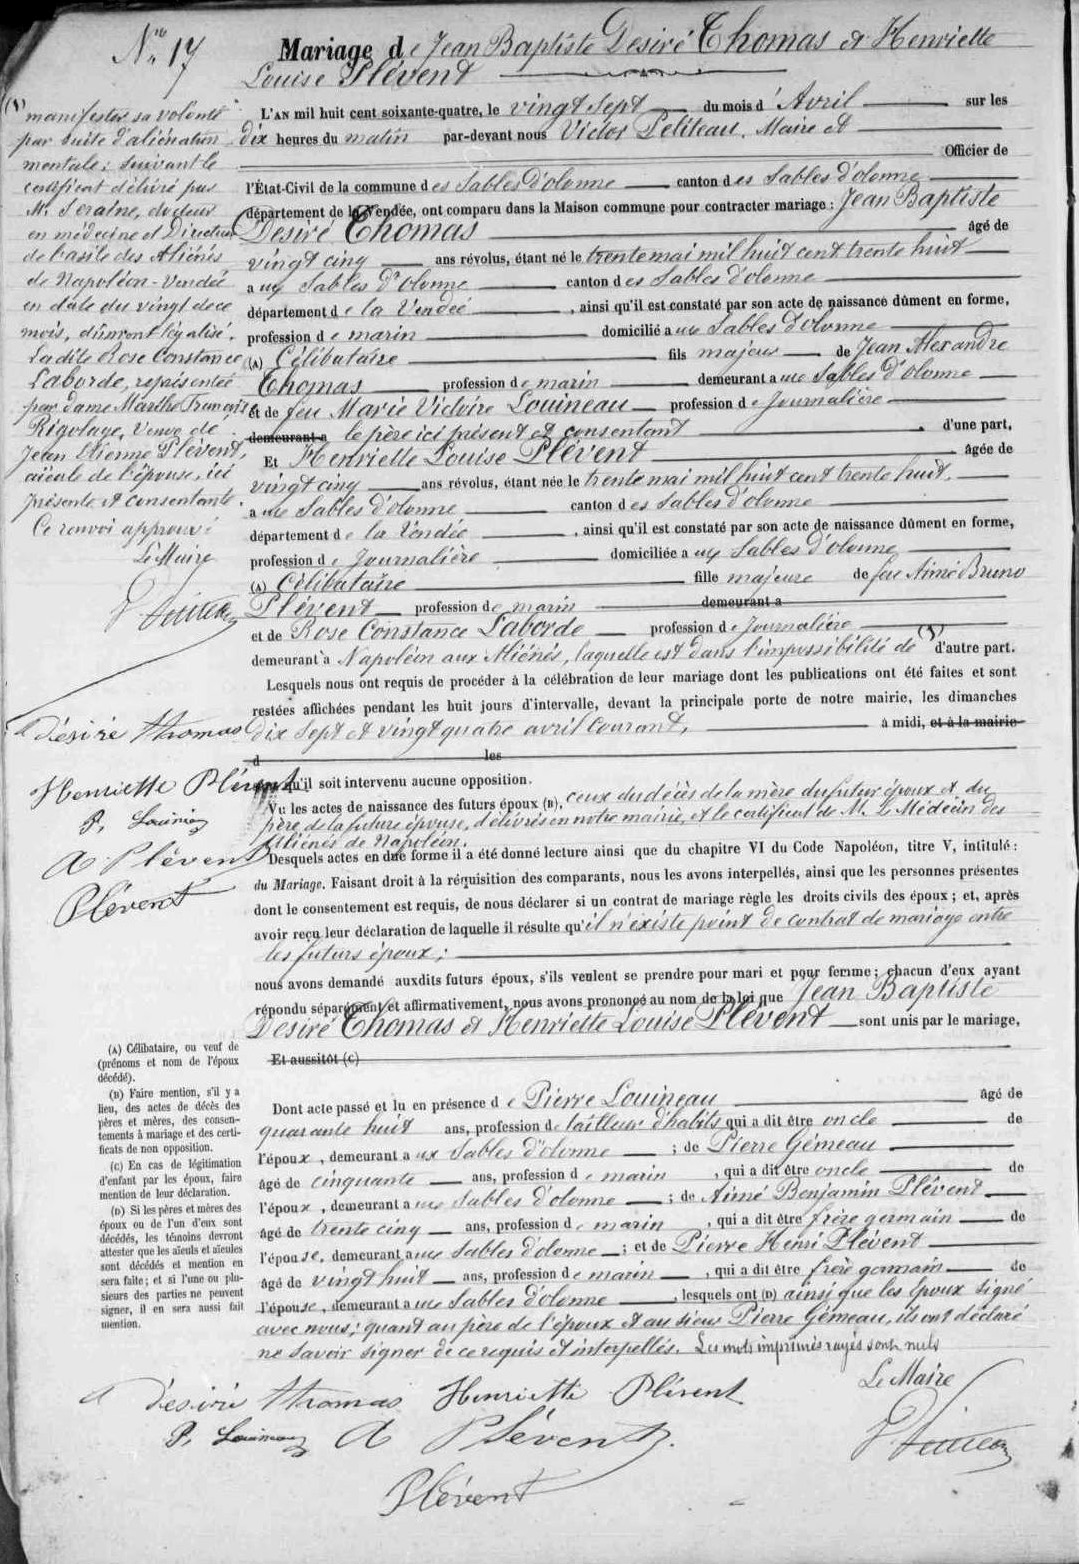 N° 17
Mariage de Jean Baptiste Desiré Thomas et Henriette
Louise Plévent
L'AN mil huit cent soixante-quatre, le vingt sept du mois d'Avril sur les
dix heures du matin par-devant nous Victor Petiteau, Maire et
Officier de
l'État-Civil de la commune des Sables d'olonne canton des Sables d'olonne
département de la Vendée, ont comparu dans la Maison commune pour contracter mariage : Jean Baptiste
Desiré Thomas âgé de
vingt cinq ans révolus, étant né le trente mai mil huit cent trente huit
aux Sables d'olonne canton des Sables d'olonne
département de la Vendée, ainsi qu'il est constaté par son acte de naissance dûment en forme,
profession de marin domicilié aux Sables d'olonne
(A) Célibataire fils majeur de Jean Alexandre
Thomas profession de marin demeurant aux Sables d'olonne
et de feu Marie Victoire Louineau profession de Journalière
demeurant a le père ici présent et consentant d'une part,
Et Henriette Louise Plévent âgée de
vingt cinq ans révolus, étant née le trente mai mil huit cent trente huit,
aux Sables d'olonne canton des Sables d'olonne
département de la Vendée, ainsi qu'il est constaté par son acte de naissance dûment en forme,
profession de Journalière domiciliée aux Sables d'olonne
(A) Célibataire fille majeure de feu Aimé Bruno
Plévent profession de marin demeurant a
et de Rose Constance Laborde profession de Journalière
demeurant à Napoléon aux Aliénés, laquelle est dans l'impossibilité de (1) d'autre part.
Lesquels nous ont requis de procéder à la célébration de leur mariage dont les publications ont été faites et sont
restées affichées pendant les huit jours d'intervalle, devant la principale porte de notre mairie, les dimanches
dix sept et vingt quatre avril courant, à midi, et à la mairie
d les
qu'il soit intervenu aucune opposition.
Vu les actes de naissance des futurs époux (B), ceux du décès de la mère du futur époux et du
père de la future épouse, délivrés en notre mairie, et le certificat de M. Le Médecin des
Aliénés de Napoléon.
Desquels actes en due forme il a été donné lecture ainsi que du chapitre VI du Code Napoléon, titre V, intitulé :
du Mariage. Faisant droit à la réquisition des comparants, nous les avons interpellés, ainsi que les personnes présentes
dont le consentement est requis, de nous déclarer si un contrat de mariage règle les droits civils des époux ; et, après
avoir reçu leur déclaration de laquelle il résulte qu'il n'existe point de contrat de mariage entre
les futurs époux ;
nous avons demandé auxdits futurs époux, s'ils veulent se prendre pour mari et pour femme ; chacun d'eux ayant
répondu séparément et affirmativement, nous avons prononcé au nom de la loi que Jean Baptiste
Desiré Thomas et Henriette Louise Plévent sont unis par le mariage,
Et aussitôt (C)
Dont acte passé et lu en présence de Pierre Louineau âgé de
quarante huit ans, profession de tailleur d'habits qui a dit être oncle de
l'époux, demeurant aux Sables d'olonne ; de Pierre Gémeau
âgé de cinquante ans, profession de marin, qui a dit être oncle de
l'époux, demeurant aux Sables d'olonne ; de Aimé Benjamin Plévent
âgé de trente cinq ans, profession de marin, qui a dit être frère germain de
l'épouse, demeurant aux Sables d'olonne ; et de Pierre Henri Plévent
âgé de vingt huit ans, profession de marin, qui a dit être frère germain de
l'épouse, demeurant aux Sables d'olonne, lesquels ont (D) ainsi que les époux signé
avec nous ; quant au père de l'époux et au sieur Pierre Gémeau, ils ont déclaré
ne savoir signer de ce requis et interpellés. Les mots imprimés rayés sont nuls
Le Maire
désiré thomas Henriette Plévent
P. Louineau A Plévent
Plévent
(1) manifester sa volonté
par suite d'aliénation
mentale ; suivant le
certificat délivré par
M. Seraine, docteur
en médecine et Directeur
de l'asile des Aliénés
de Napoléon-Vendée
en date du vingt de ce
mois, dûment légalisé.
La dite Rose Constance
Laborde, représentée
par dame Marthe Françoise
Rigolage, Veuve de
Jean Etienne Plévent,
aïeule de l'épouse, ici
présente et consentante.
Ce renvoi approuvé
Le Maire
désiré thomas
Henriette Plévent
P. Louineau
A Plévent
Plévent
(A) Célibataire, ou veuf de
(prénoms et nom de l'époux
décédé).
(B) Faire mention, s'il y a
lieu, des actes de décès des
pères et mères, des consen-
tements à mariage et des certi-
ficats de non opposition.
(C) En cas de légitimation
d'enfant par les époux, faire
mention de leur déclaration.
(D) Si les pères et mères des
époux ou de l'un d'eux sont
décédés, les témoins devront
attester que les aïeuls et aïeules
sont décédés et mention en
sera faite ; et si l'une ou plu-
sieurs des parties ne peuvent
signer, il en sera aussi fait
mention.